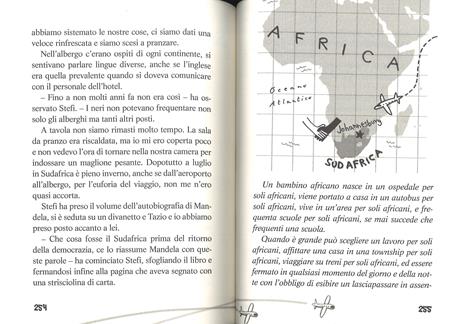 abbiamo sistemato le nostre cose, ci siamo dati una
veloce rinfrescata e siamo scesi a pranzare.
Nell'albergo c'erano ospiti di ogni continente, si
sentivano parlare lingue diverse, anche se l'inglese
era quella prevalente quando si doveva comunicare
con il personale dell'hotel.
– Fino a non molti anni fa non era così – ha os-
servato Stefi. – I neri non potevano frequentare non
solo gli alberghi ma tanti altri posti.
A tavola non siamo rimasti molto tempo. La sala
da pranzo era riscaldata, ma io mi ero coperta poco
e non vedevo l'ora di tornare nella nostra camera per
indossare un maglione pesante. Dopotutto a luglio
in Sudafrica è pieno inverno, anche se dall'aeroporto
all'albergo, per l'euforia del viaggio, non me n'ero
quasi accorta.
Stefi ha preso il volume dell'autobiografia di Man-
dela, si è seduta su un divanetto e Tazio e io abbiamo
preso posto accanto a lei.
– Che cosa fosse il Sudafrica prima del ritorno
della democrazia, ce lo riassume Mandela con que-
ste parole – ha cominciato Stefi, sfogliando il libro e
fermandosi infine alla pagina che aveva segnato con
una strisciolina di carta.
254
AFRICA
Oceano
Atlantico
Johannesburg
SUDAFRICA
Un bambino africano nasce in un ospedale per
soli africani, viene portato a casa in autobus per
soli africani, vive in un'area per soli africani, e fre-
quenta scuole per soli africani, se mai succede che
frequenti una scuola.
Quando è grande può scegliere un lavoro per soli
africani, affittare una casa in una township per soli
africani, viaggiare su treni per soli africani, ed essere
fermato in qualsiasi momento del giorno e della not-
te con l'obbligo di esibire un lasciapassare in assen-
255